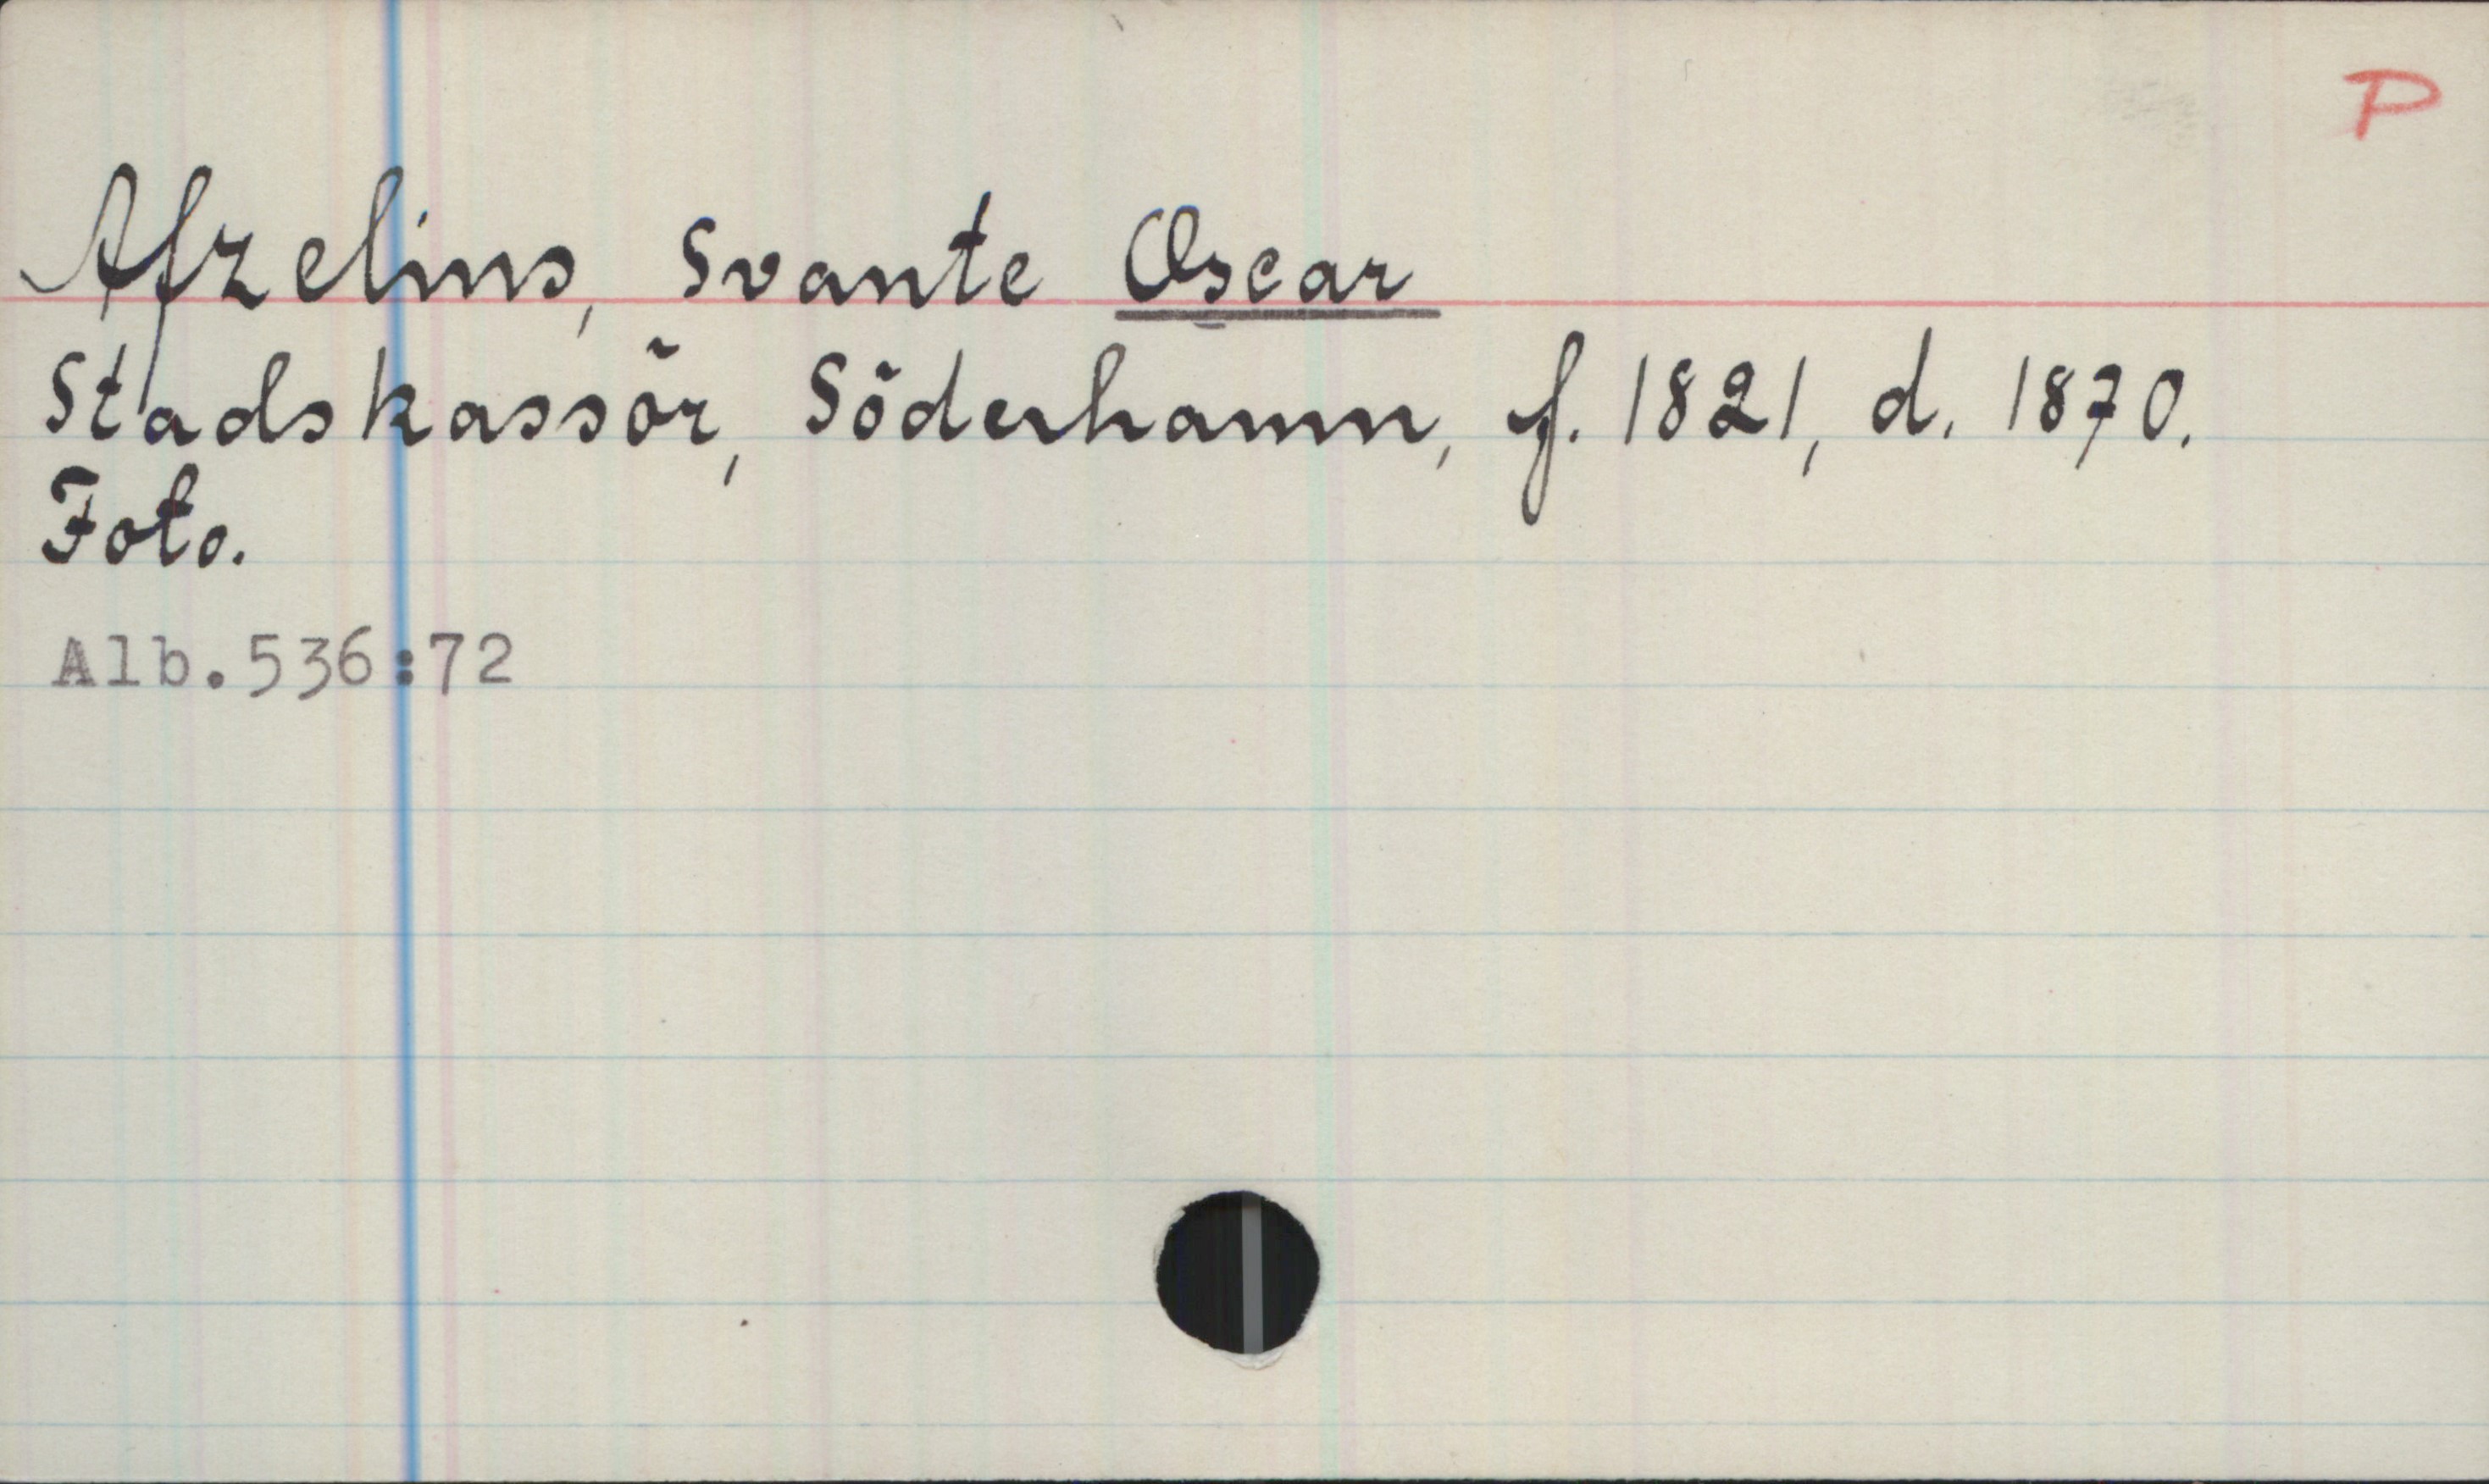 P
Afzelius, Svante Oscar
Stadskassör, Söderhamn, f. 1821, d. 1870.
Foto.
Alb.536:72